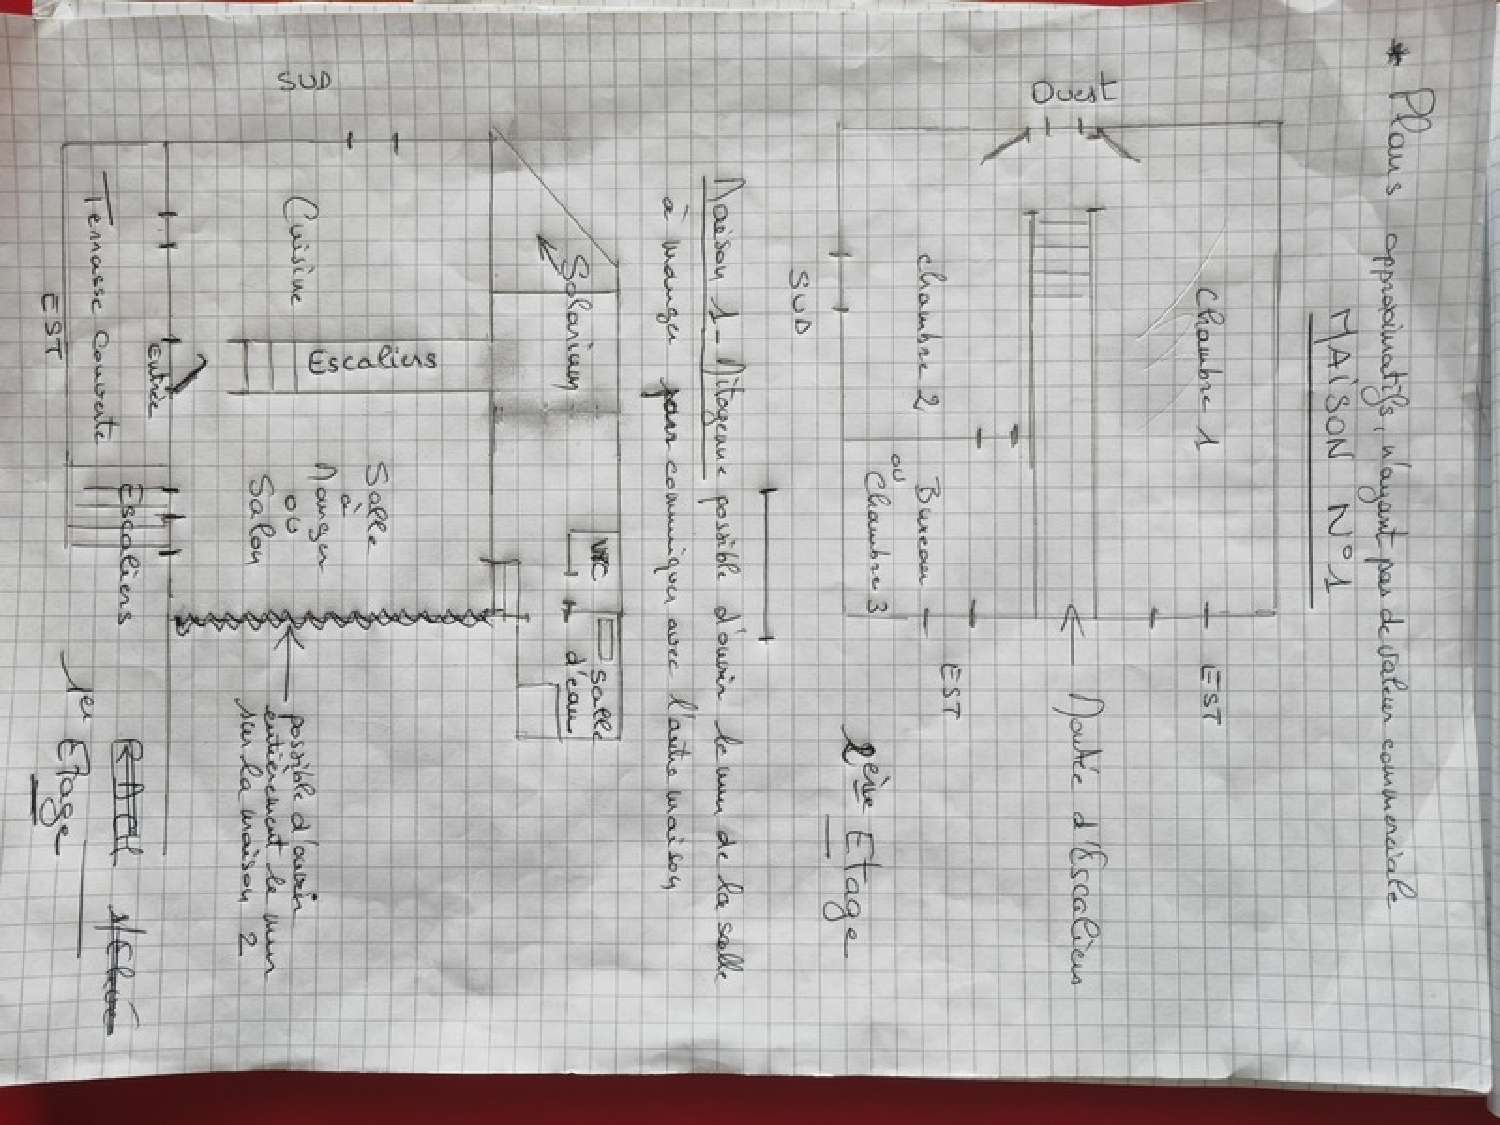 * Plans approximatifs, n'ayant pas de valeur commerciale
MAISON N°1
Ouest
Chambre 1
EST
Montée d'Escaliers
chambre 2
Bureau
ou
Chambre 3
EST
SUD
2ème Etage
Maison 1 - Mitoyenne possible d'ouvrir le mur de la salle
à manger pour communiquer avec l'autre maison
SUD
Solarium
WC
Salle
d'eau
Cuisine
Escaliers
Salle
à
Manger
ou
Salon
possible d'ouvrir
entièrement le mur
sur la maison 2
Entrée
Escaliers
Terrasse Couverte
EST
1er Etage